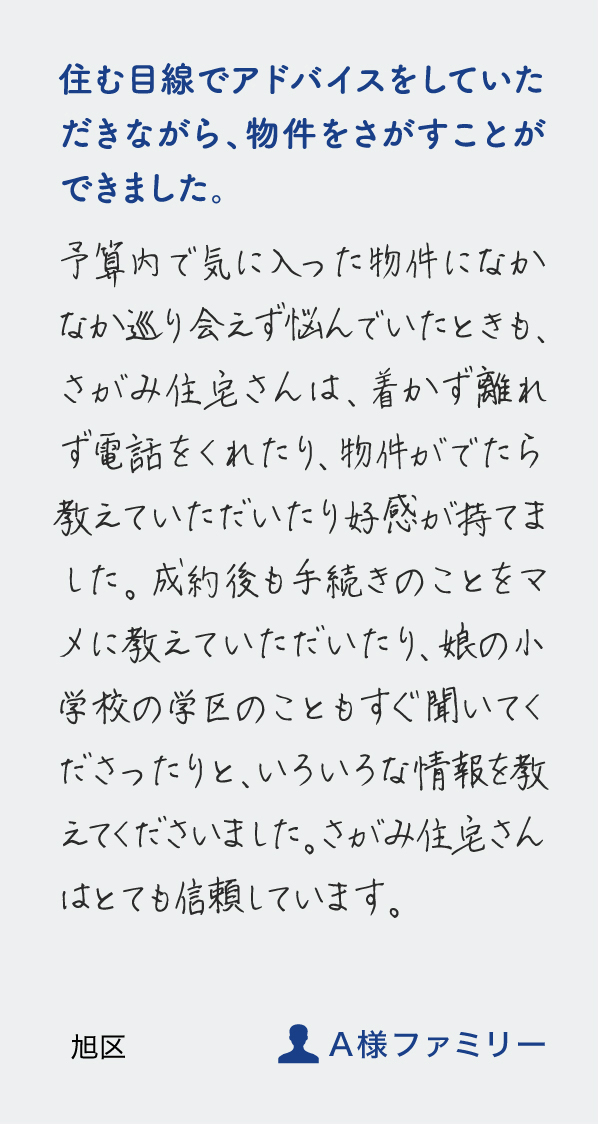 住む目線でアドバイスをしていた
だきながら、物件をさがすことが
できました。
予算内で気に入った物件になか
なか巡り会えず悩んでいたときも、
さがみ住宅さんは、着かず離れ
ず電話をくれたり、物件がでたら
教えていただいたり好感が持てま
した。成約後も手続きのことをマ
メに教えていただいたり、娘の小
学校の学区のこともすぐ聞いてく
ださったりと、いろいろな情報を教
えてくださいました。さがみ住宅さん
はとても信頼しています。
旭区 A様ファミリー